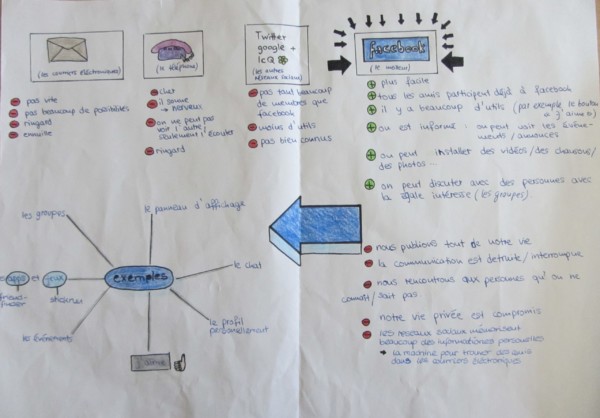 (les courriers électroniques)
pas vite
pas beaucoup de possibilités
ringard
ennuite
(le téléphone)
cher
il sonne
→ nerveux
on ne peut pas
voir l'autre,
seulement l'écouter
ringard
Twitter
google +
IcQ
(les autres
réseaux sociaux)
pas tant beaucoup
de membres que
facebook
moins d'utils
pas bien connus
facebook
(le meilleur)
plus facile
tous les amis participent déjà à facebook
il y a beaucoup d'utils (par exemple le bouton
« j'aime »)
on est informé : on peut voir les évène-
ments / annonces
on peut installer des vidéos / des chansons /
des photos ...
on peut discuter avec des personnes avec
la égale intéresse (les groupes).
nous publions tout de notre vie
la communication est detruite / interrompue
nous rencontrons aux personnes qu'on ne
connaît / sait pas
notre vie privée est compromis
les réseaux sociaux mémorisent
beaucoup des informationes personelles
→ la machine pour trouver des amis
dans les courriers électroniques
exemples
les groupes
le panneau d'affichage
le chat
le profil
personnellement
j'aime
les événements
et
jeux